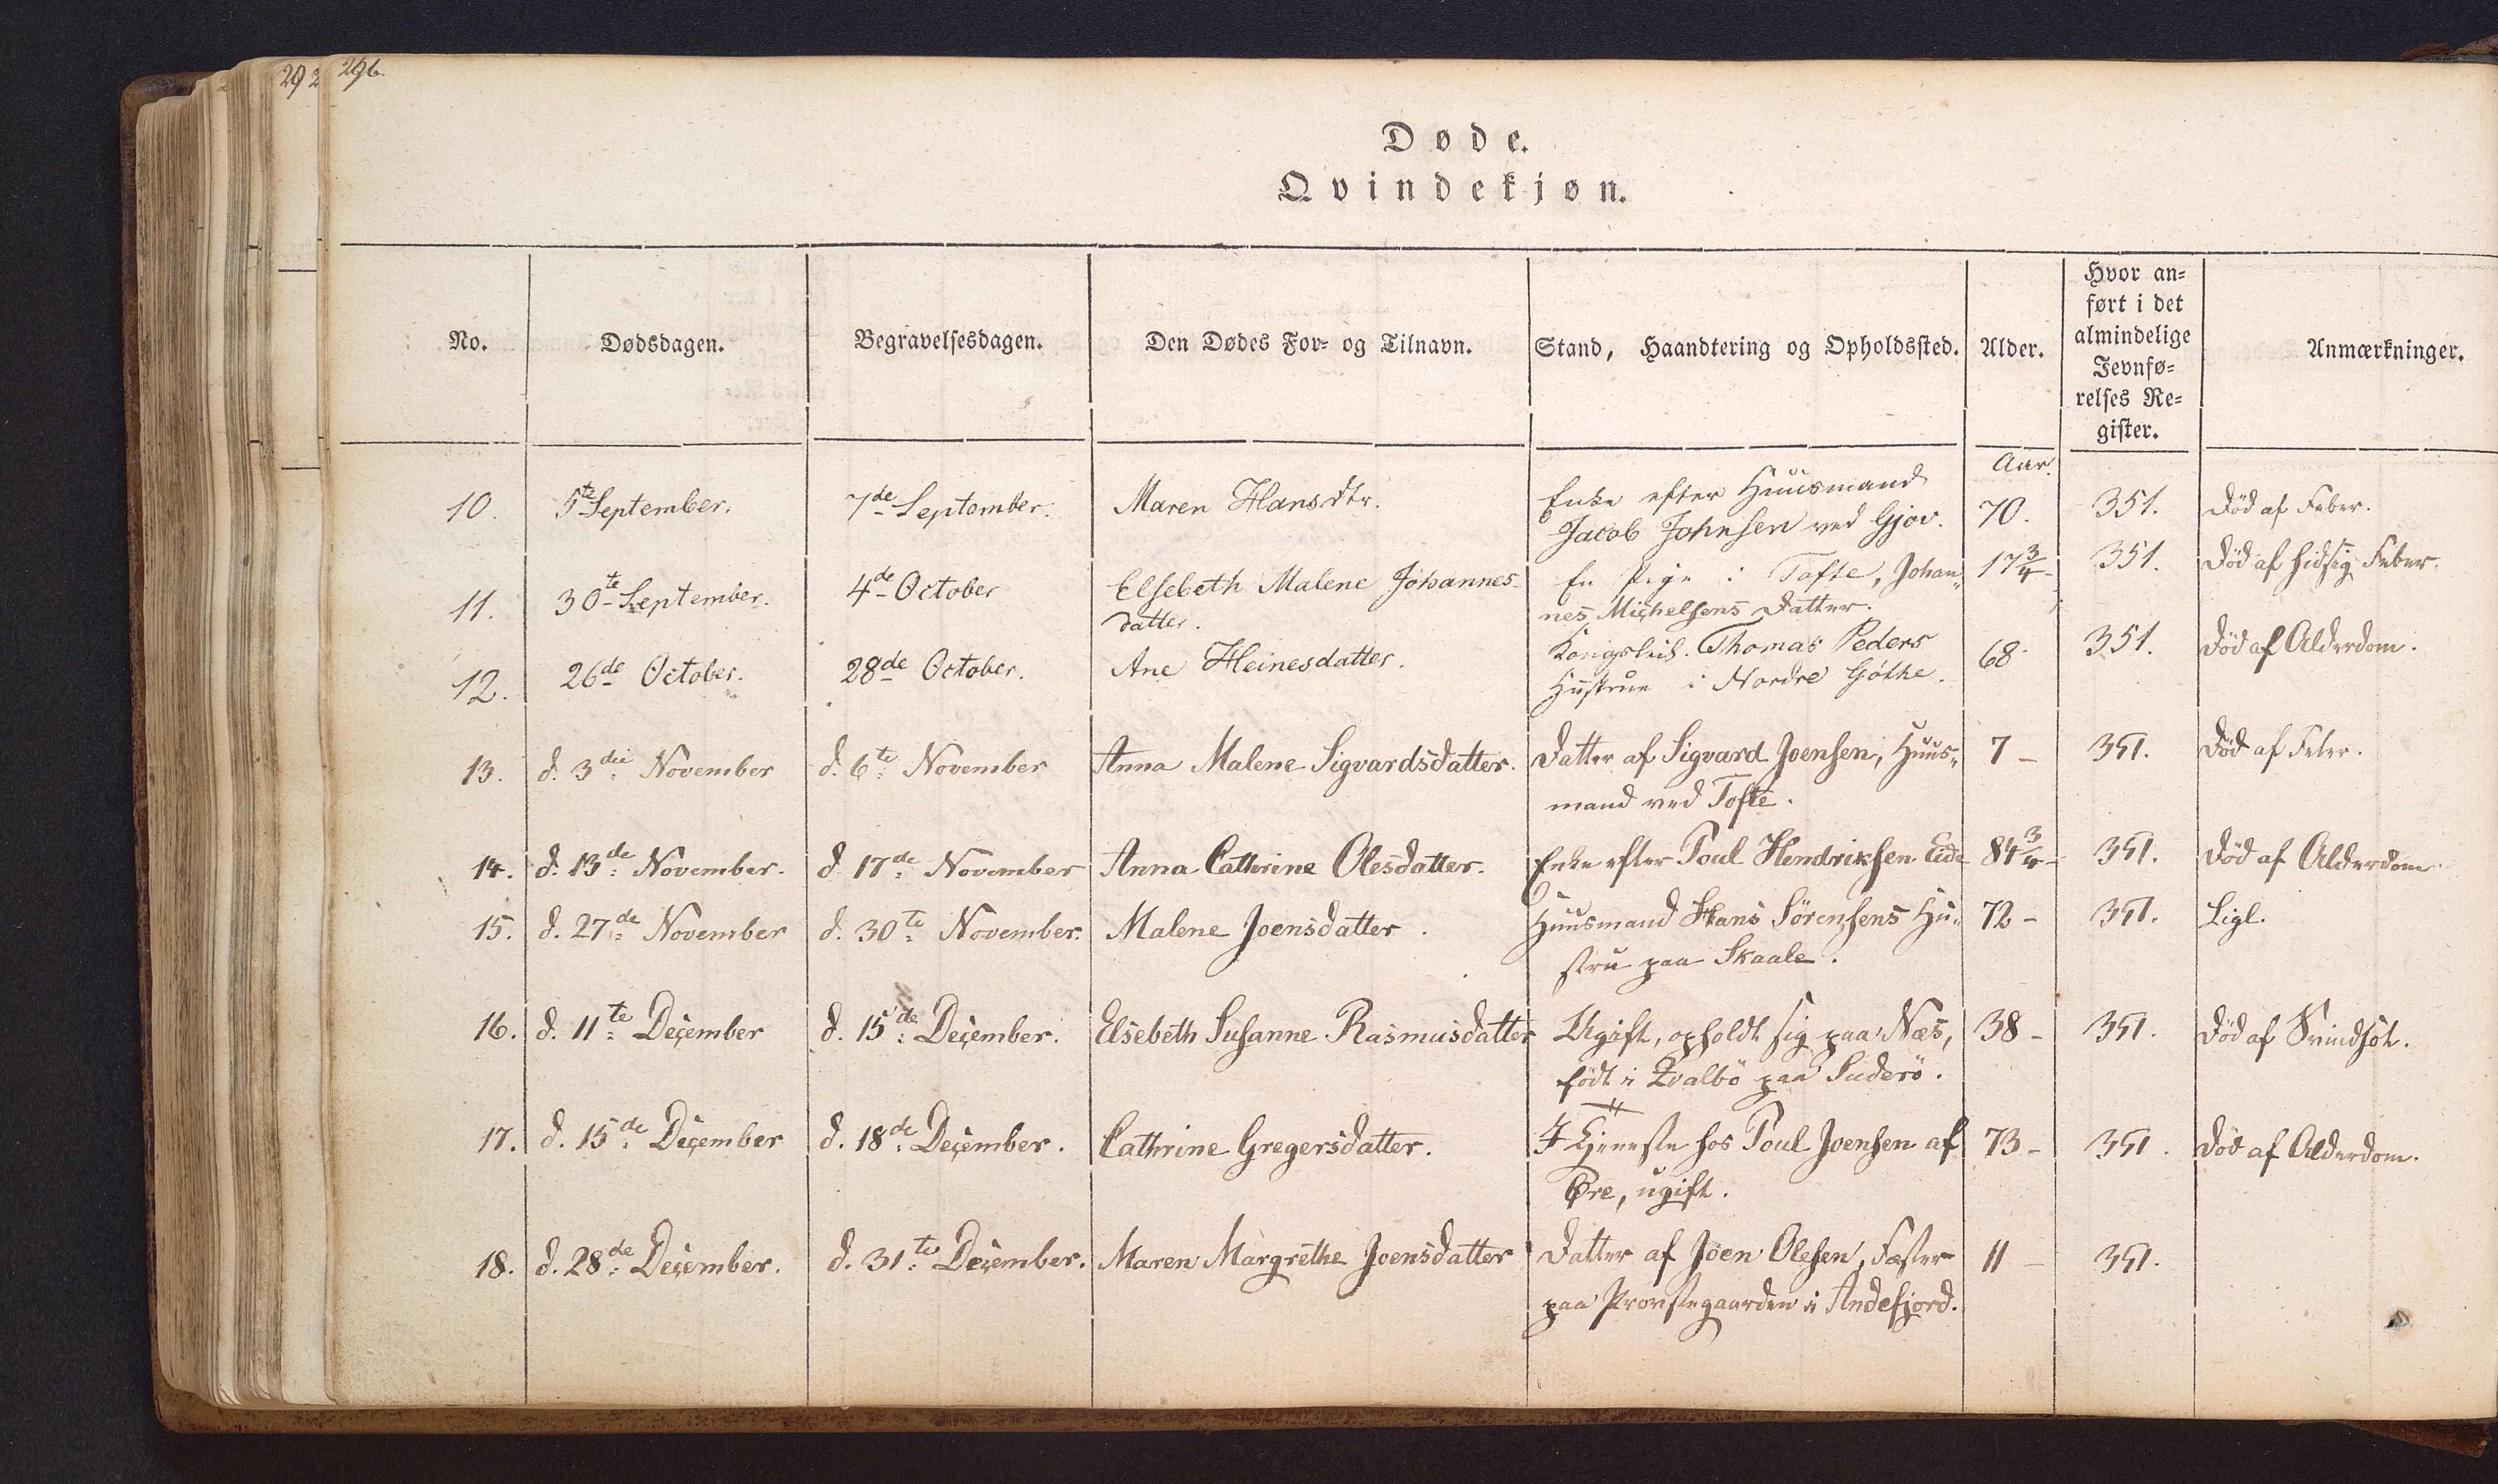 292
296.
Døde.
Qvindekjøn.
No.
Dødsdagen.
Begravelsesdagen.
Den Dødes For- og Tilnavn.
Stand, Haandtering og Opholdssted.
Alder.
Hvor an-
ført i det
almindelige
Jevnfø-
relses Re-
gister.
Anmærkninger.
Aar.
10. 5te September. 7de September. Maren Hansdtr. Enke efter Huusmand 70. 351. Død af Feber.
Jacob Johnsen ved Gjov.
11. 30te September. 4de October Elsebeth Malene Johannes- En Pige i Tofte, Johan„ 17 3/4 - 351. Død af hidsig Feber.
datter. nes Michelsens Datter.
12. 26de October. 28de October. Ane Heinesdatter. Kongsleil. Thomas Peders 68 351. Død af Alderdom.
Hustrue i Nordre Gøthe.
13. d. 3die November d. 6te November Anna Malene Sigvardsdatter. Datter af Sigvard Joensen, Huus„ 7 - 351. Død af Feber.
mand ved Tofte.
14. d. 13de November. d. 17de November Anna Cathrine Olesdatter. Enke efter Poul Hendriksen Eide 84 3/4 - 351. Død af Alderdom
15. d. 27de November d. 30te November. Malene Joensdatter. Huusmand Hans Sørensens Hu„ 72 - 351. Ligl.
stru paa Skaale.
16. d. 11te December d. 15de December. Elsebeth Susanne Rasmusdatter Ugift, opholdt sig paa Næs, 38 - 351. Død af Svindsot.
født i Qvalbö paa Suderö.
17. d. 15de December d. 18de December. Cathrine Gregersdatter. I Tjeneste hos Poul Joensen af 73 - 351. Død af Alderdom.
Øre, ugift.
18. d. 28de December. d. 31te December. Maren Margrethe Joensdatter Datter af Joen Olesen, Fæster 11 - 351.
paa Provstegaarden i Andefjord.